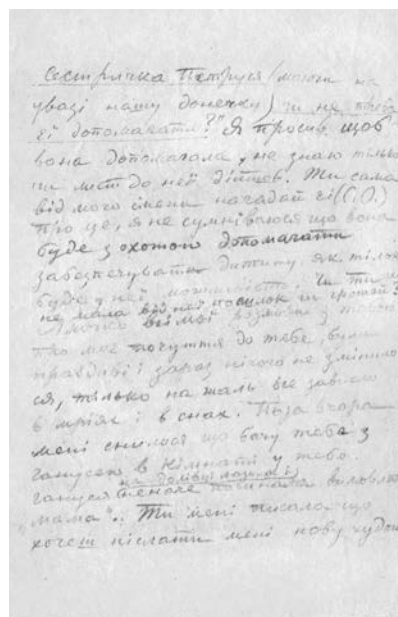 Сестричка Петруся (маючи на
увазі нашу донечку) чи не
її допомагати?" Я просив, щоб
вона допомагала, не знаю тільки
чи лист до неї дійшов. Ти сама
від мого імени нагадай її (С.О.)
про це, я не сумніваюся що вона
буде з охотою допомагати
забезпечувати дитину як тільк
буде у неї можливість. Чи ти ще
не мала від неї посилок чи грошей?
всі мої з тобою
про моє почуття до тебе, були
правдиві і зараз нічого не змінило
ся, тілько на жаль все
в мріях і в снах. Поза вчора
мені снилося що бачу тебе з
Ганусею в кімнаті у тебе.
на долівці
Гануся неначе починала вимовля
"мама".. Ти мені писала що
хочеш післати мені нову